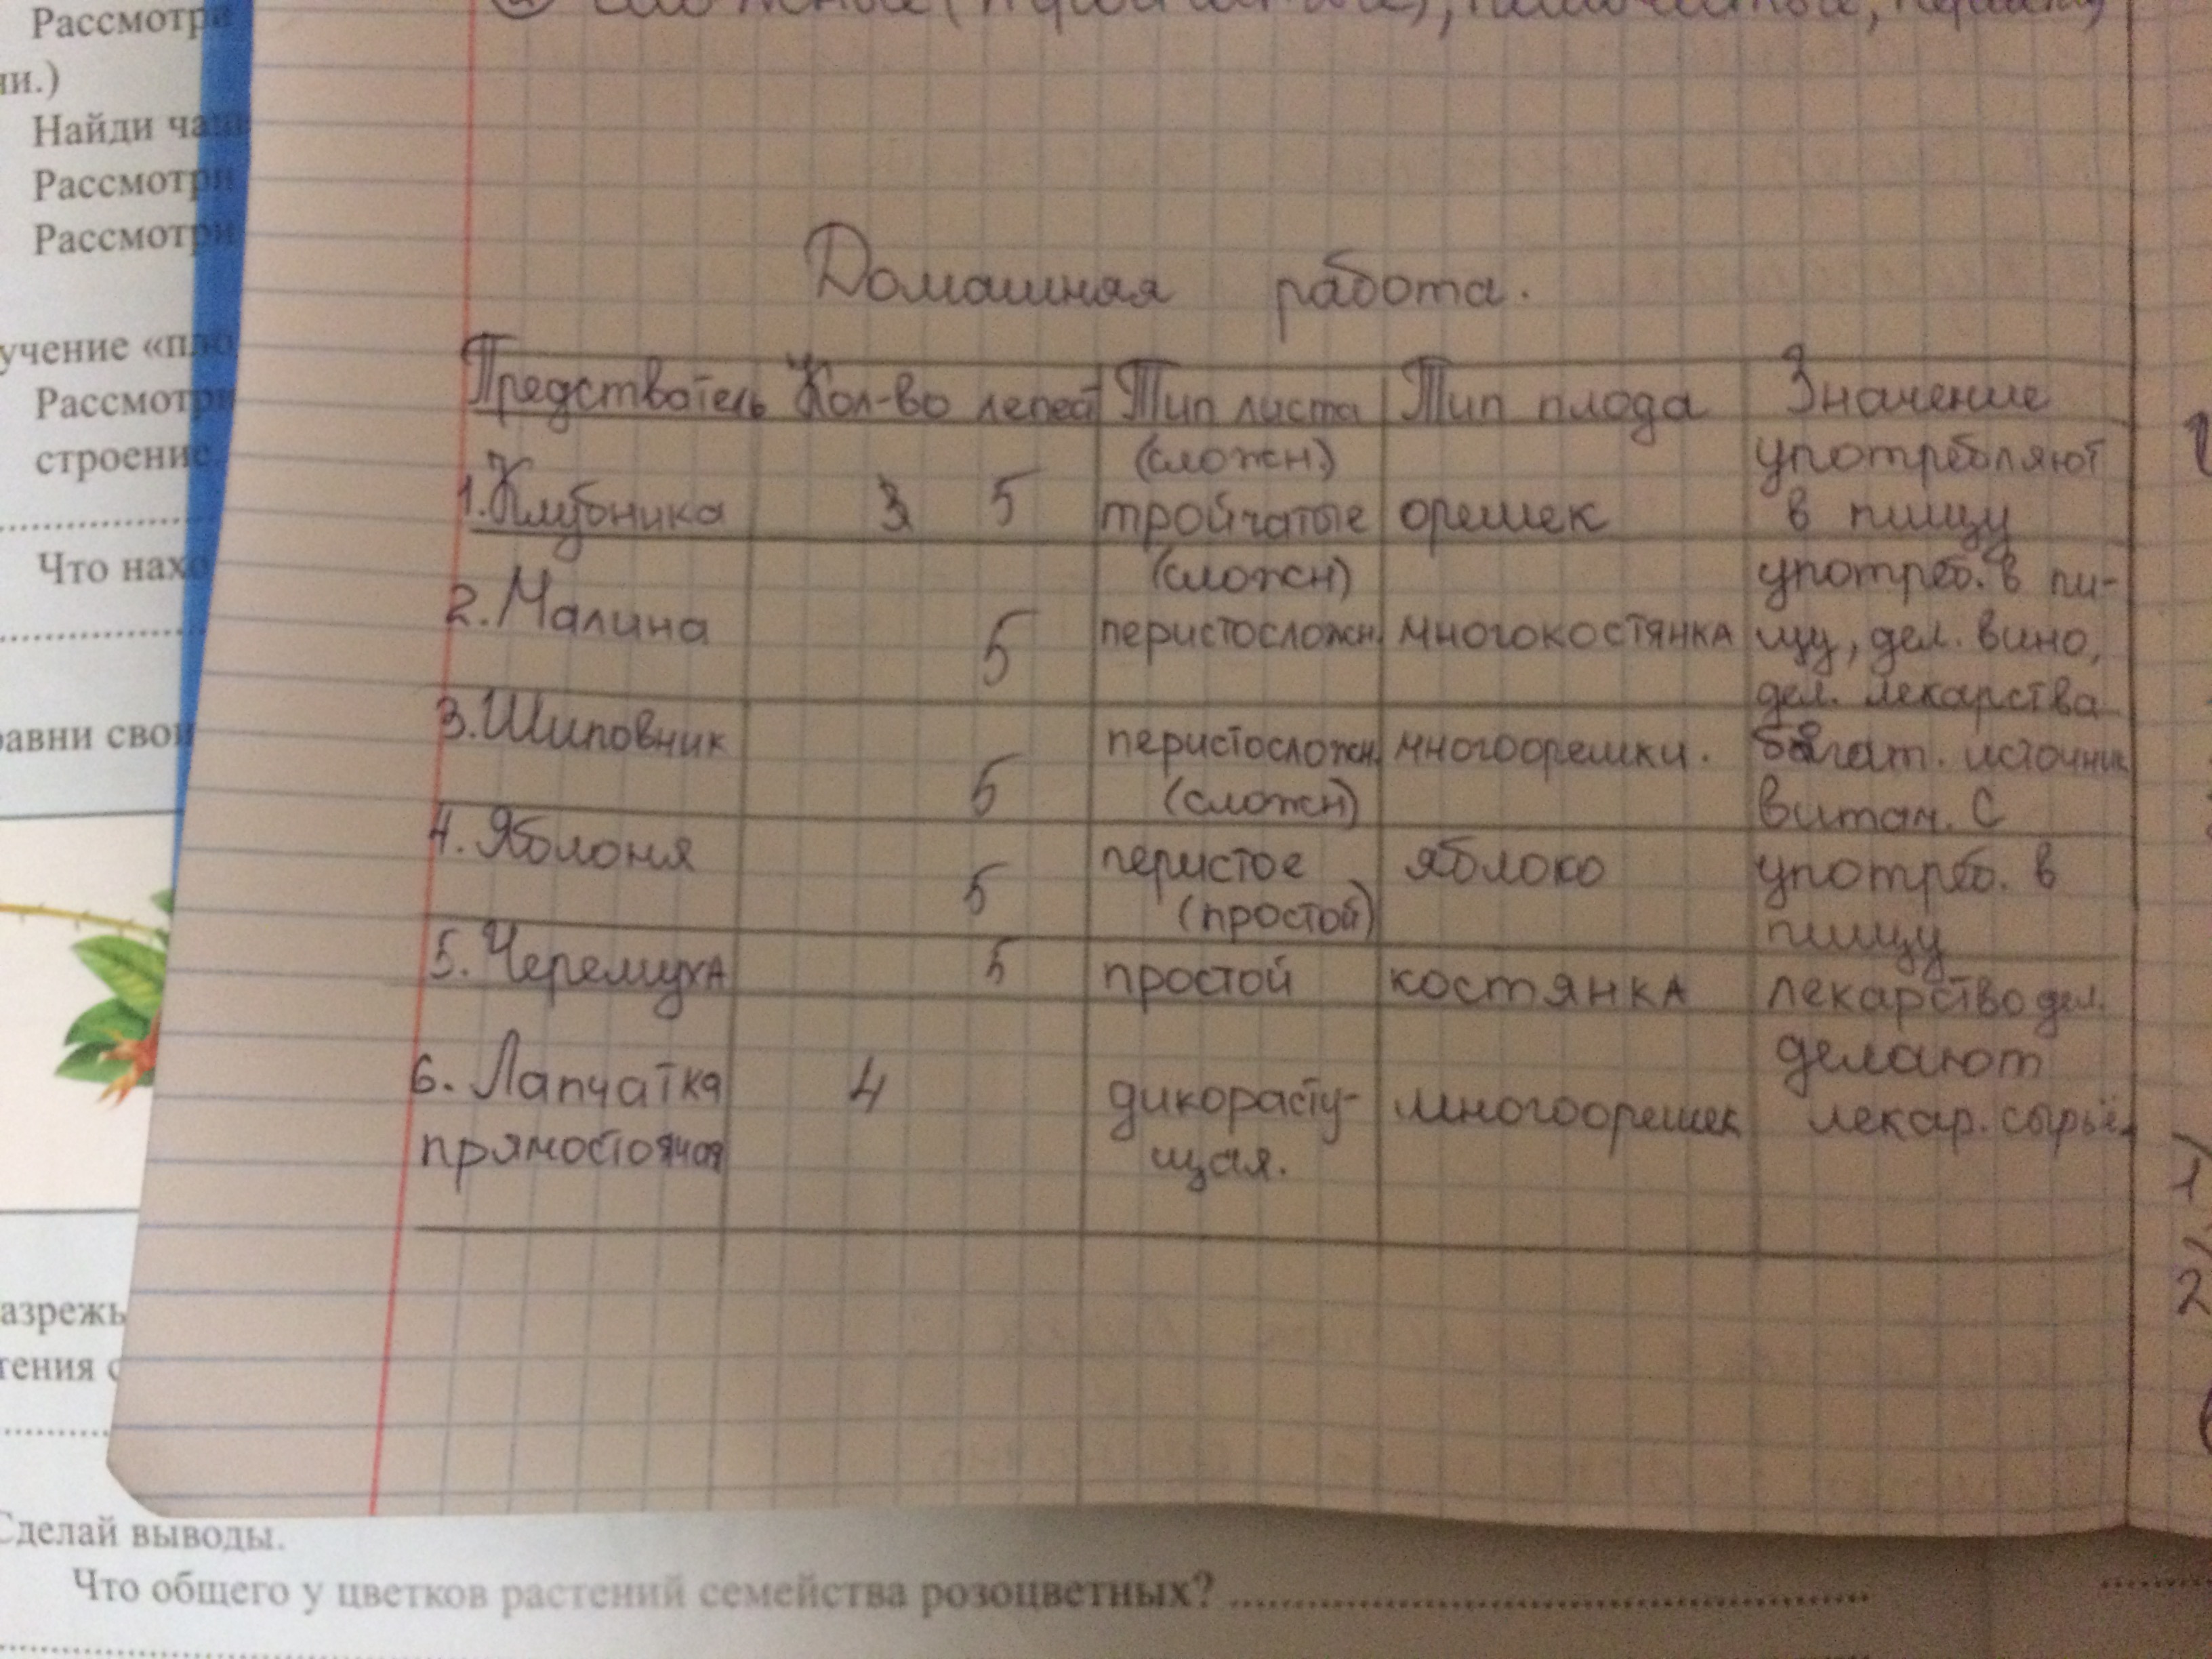 Рассмотри
ни.)
Найди чаш
Рассмотри
Рассмотри
учение «пло
Рассмотри
строение
Что нахо
равни свои
азрежь
тения с
Домашняя работа.
Представтель Кол-во лепест Тип листа Тип плода Значение
(сложн.) употребляют
1. Клубника 5 тройчатые орешек в пищу
(сложн) употреб. в пи-
2. Малина 5 перистосложн. многокостянка щу, дел. вино,
дел. лекарства
3. Шиповник перистосложн. многоорешки. богат. источник
5 (сложн) витам. С
4. Яблоня перистое яблоко употреб. в
5 (простой) пищу
5. Черемуха 5 простой костянка лекарство дел.
делают
6. Лапчатка 4 дикорасту- многоорешек лекар. сырьё.
прямостоячая щая.
2
Сделай выводы.
Что общего у цветков растений семейства розоцветных?